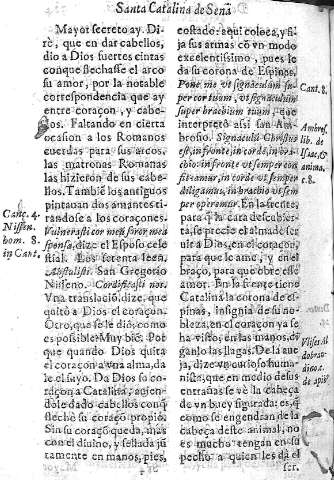 Santa Catalina de Sena
Mayor secreto ay. Di-
rè, que en dar cabellos,
dio a Dios fuertes cintas
conque flechasse el arco
su amor, por la notable
correspondencia que ay
entre coraçon, y cabe-
llos. Faltando en cierta
ocasiõ a los Romanos
cuerdas para sus arcos,
las matronas Romanas
las hizieron de sus cabe-
llos. Tambiẽ los antiguos
pintauan dos amantes ti-
randose a los coraçones.
Vulnerasti cor meũ soror mea
sponsa, dize el Esposo cele
stial. Los setenta leen.
Abstulisti. San Gregorio
Nisseno. Cordifasti nos.
Vna translaciõ, dize, que
quitò a Dios el coraçon.
Otro, que se le diò, como
es posible? Muy biẽ. Por
que quando Dios quita
el coraçon a vna alma, da
le el suyo. Da Dios su co-
raçon a Catalina, auien-
dole dado cabellos conq̃
fleche su coraçõ propio.
Sin su coraçõ queda, mas
con el diuino, y sellada jũ
tamente en manos, pies,
Cant. 4.
Nissen.
hom. 8.
in Cant.
costado: aqui coloca, y fi-
ja sus armas cõ vn modo
excelentissimo, pues le
da su corona de Espinas.
Pone me vt signaculum su-
per cor tuum, vt signaculum
super brachium tuum, que
interpretò assi san Am-
brosio. Signaculũ Christus
est, in fronte, in corde, in bra-
chio: in fronte vt semper con
fit-emur, in corde vt semper
diligamus, in brachio vt sem
per operemur. En la frente,
para q̃ la cara descubier-
ta, se precie el alma de ser
uir a Dios, en el coraçon,
para que le ame, y en el
braço, para que obre esse
amor. En la frente tiene
Catalina la corona de es-
pinas, insignia de su no-
bleza, en el coraçon ya se
ha visto, en las manos, di
ganlo las llagas. De la aue
ja, dize vn curioso huma-
nista, que en medio de sus
entrañas se vè la cabeça
de vn buey figurada: es, q̃
como se engendran de la
cabeça deste animal, no
es mucho tengan en su
pecho a quien les dà el
ser.
Cant. 8.
Ambros.
lib. de
Isaac, &
anima.
c. 8.